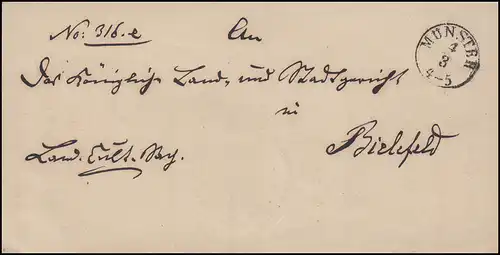 No: 316.e
An
MUNSTER
4
8
4-5
Das Königliche Land- und Stadtgericht
in
Bielefeld
Land. Cult. Sach.